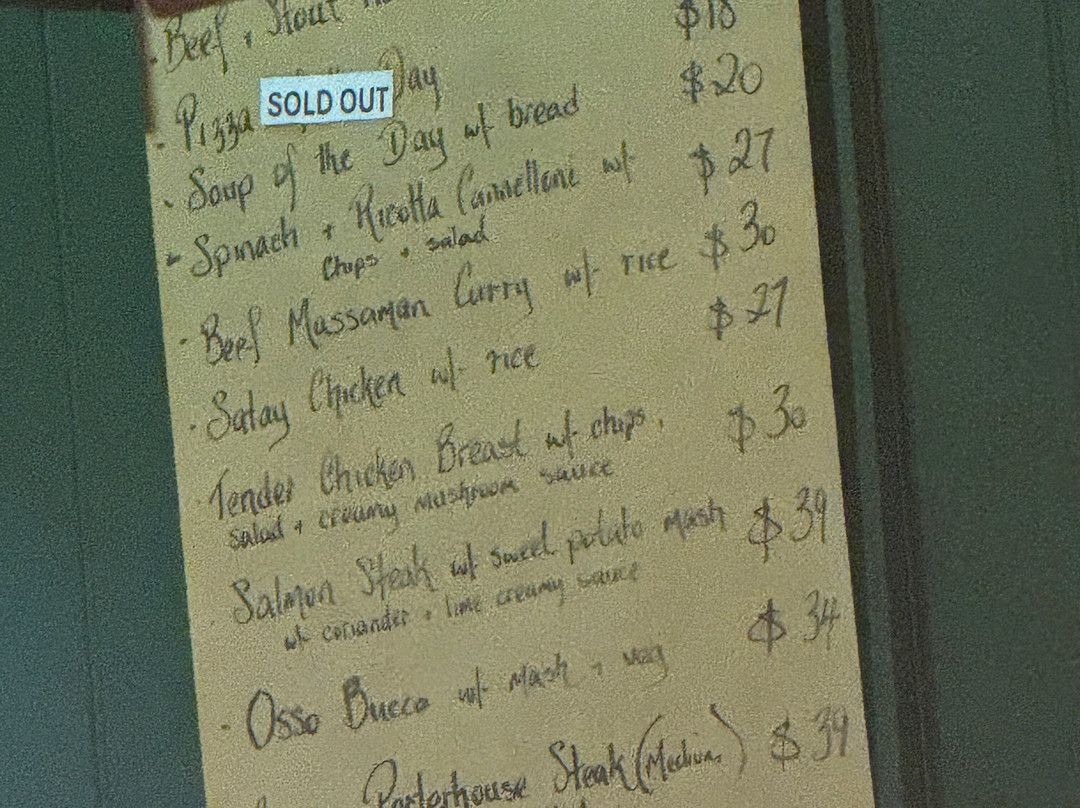 · Beef + Stout
· Pizza SOLD OUT Day $18
· Soup of the Day w/ bread $20
- Spinach + Ricotta Cannelloni w/ $27
chips + salad
· Beef Massaman Curry w/ rice $30
· Satay Chicken w/ rice $27
Tender Chicken Breast w/ chips, $30
salad + creamy mushroom sauce
· Salmon Steak w/ sweet potato mash $39
w/ coriander + lime creamy sauce
· Osso Bucco w/ mash + veg $34
Porterhouse Steak (Medium) $39